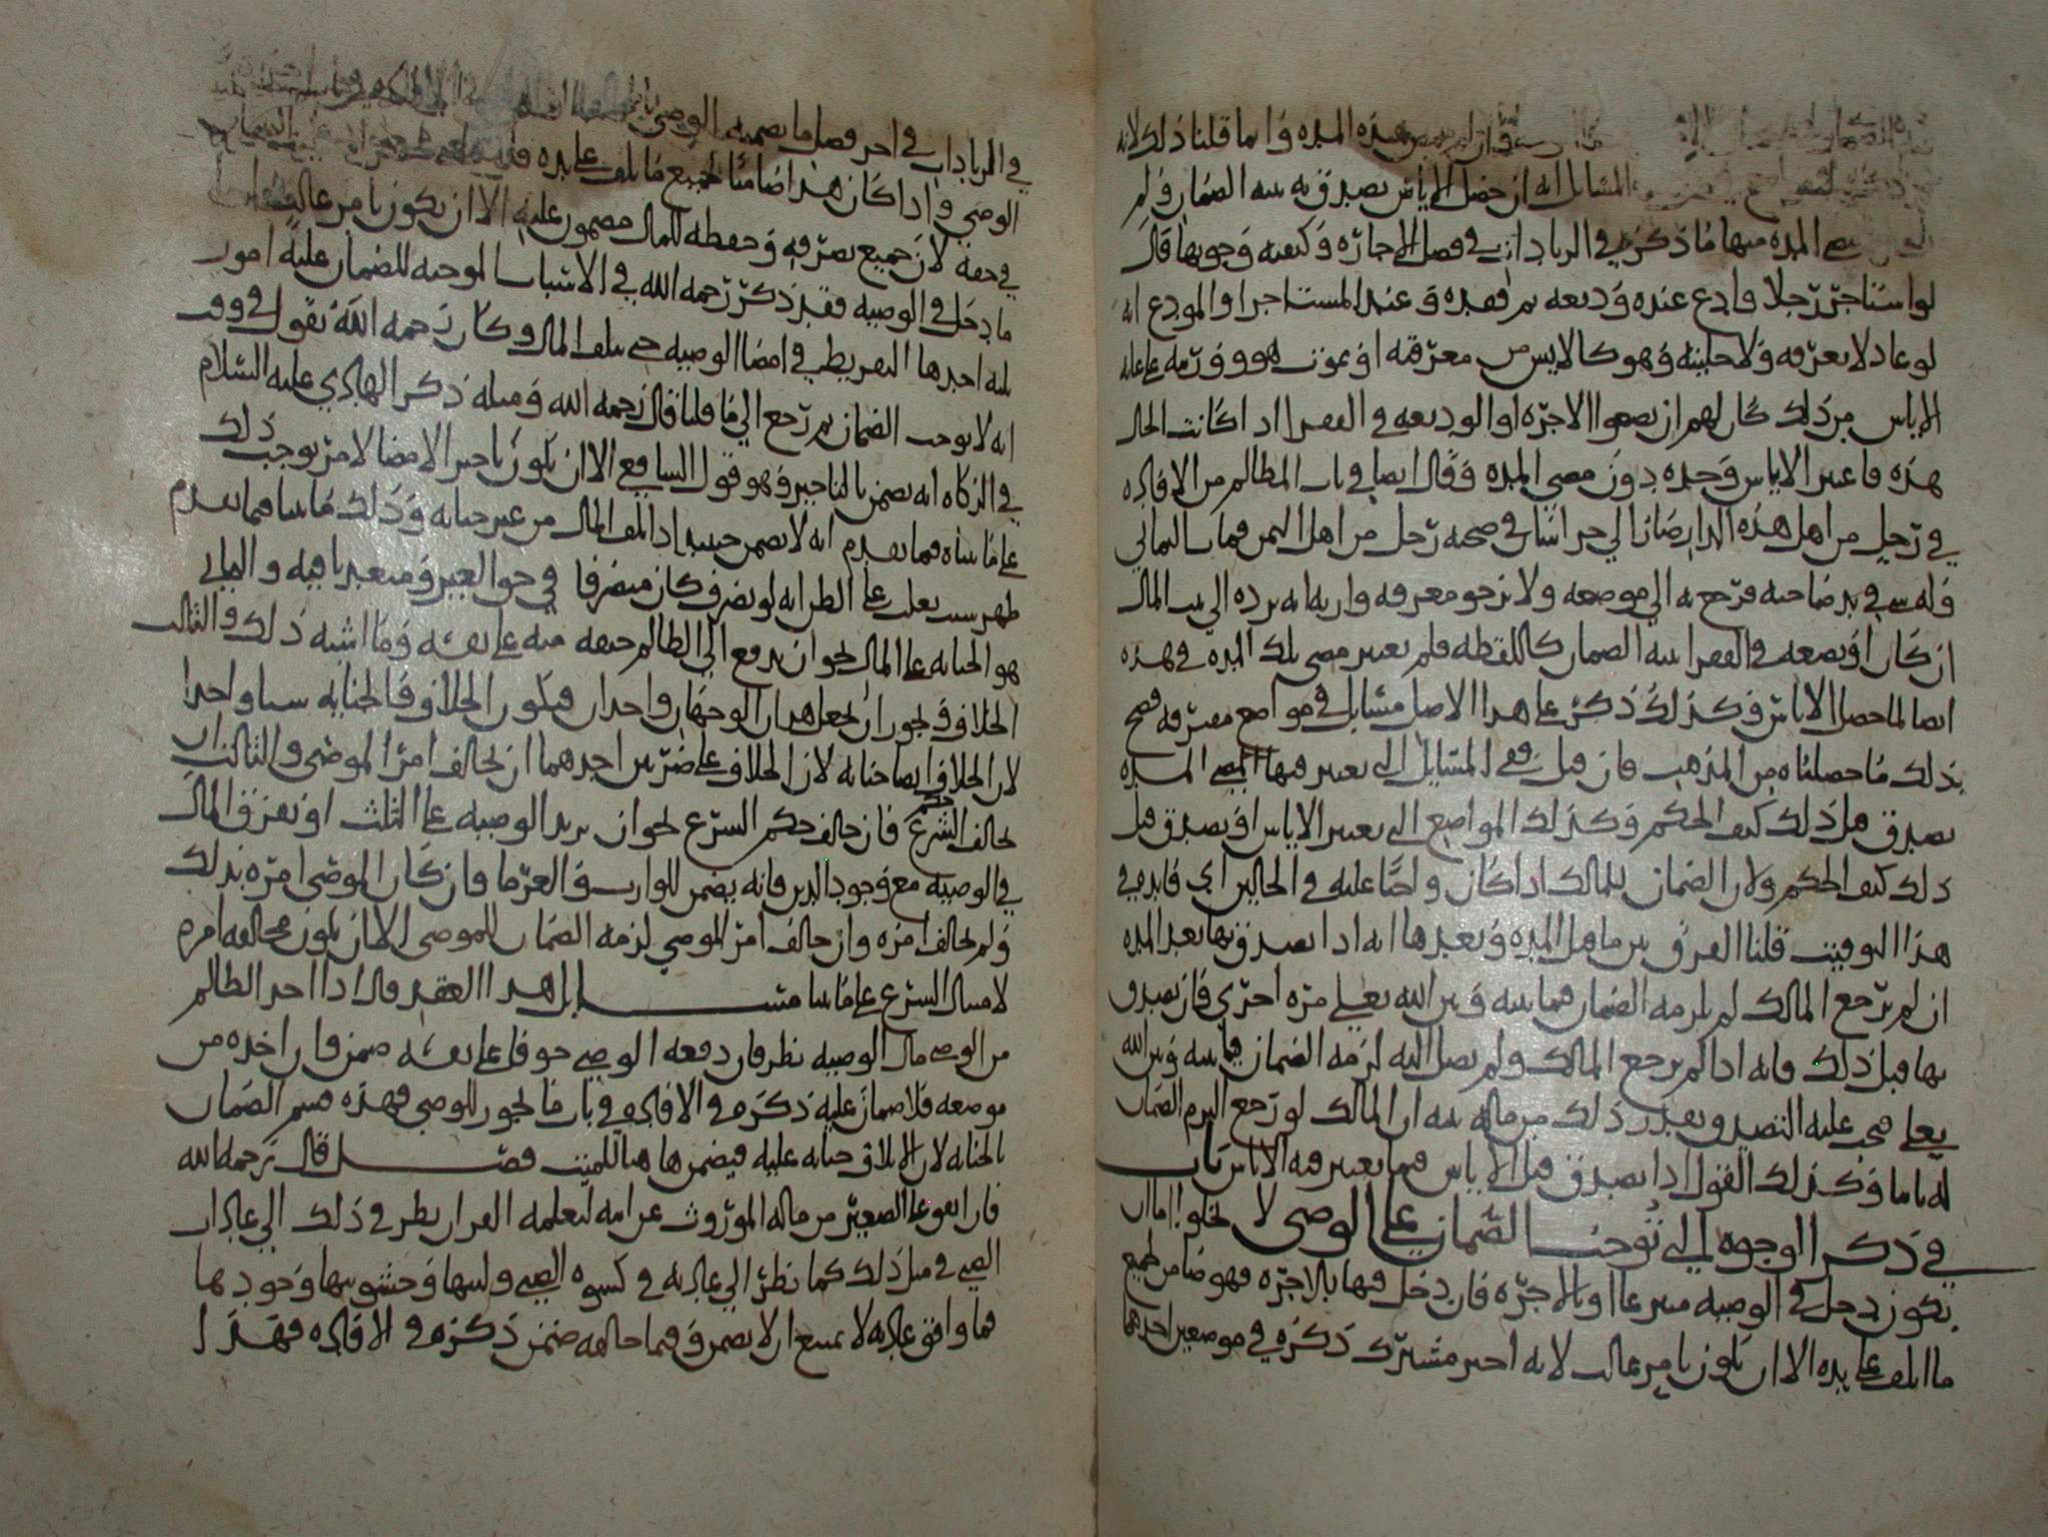 هذه المده وانما قلنا ذلك لانه
المسايل انه ان حصل الاياس تصدق به بنيه الضمان ولم
المده منها ما ذكره في الزيادات في فصل الاجازه وكيفيه وجوبها قال
لو استاجر رجلا واودع عنده وديعه ثم فقده وعند المستاجر او المودع انه
لو عاد لا يعرفه ولا حليته وهو كالايس من معرفته او بموت هو وورثته
الاياس من ذلك كان لهم ان يضعوا الاجره او الوديعه في الفقرا اذا كانت الحال
هذه فاعتبر الاياس وحده دون مضي المده وقال ايضا في باب المظالم من الافاده
في رجل من اهل هذه الديار صار الى خراسان في صحبه رجل من اهل اليمن فمات اليماني
وله شي في يد صاحبه فرجع به الى موضعه ولا يرجو معرفه وارثه انه يرده الى بيت المال
ان كان او يضعه في الفقرا بنيه الضمان كاللقطه فلم يعتبر مضي تلك المده في هذه
ايضا لما حصل الاياس وكذلك ذكر على هذا الاصل مسايل في مواضع مفترقه فصح
بذلك ما حصلناه من المذهب فان قيل ففي المسايل التي يعتبر فيها المضي المده
تصدق قبل ذلك كيف الحكم وكذلك المواضع التي يعتبر الاياس او تصدق قبل
ذلك كيف الحكم ولان الضمان للمالك اذا كان واجبا عليه في الحالين اي فايده في
هذا التوقيت قلنا الفرق بين ما قبل المده وبعدها انه اذا تصدق بها بعد المده
ان لم يرجع المالك لم يلزمه الضمان فيما بينه وبين الله تعالى مره اخرى فان تصدق
بها قبل ذلك فانه اذا لم يرجع المالك ولم يصل اليه لزمه الضمان فيما بينه وبين الله
تعالى فيجب عليه التصدق بقدر ذلك من ماله بنيه ان المالك لو رجع الزم الضمان
له تاما وكذلك القول اذا تصدق قبل الاياس فيما يعتبر فيه الاياس باب
في ذكر الوجوه التي توجب الضمان على الوصي لا يخلوا اما ان
يكون دخل في الوصيه متبرعا او بالاجره فان دخل فيها بالاجره فهو ضامن لجميع
ما تلف على يده الا ان يكون بامر غالب لانه اجير مشترك ذكره في موضعين احدهما
في الزيادات في اخر فصل ما يضمنه الوصي
الوصي واذا كان هذا ضامنا لجميع ما تلف على يده
في حقه لان جميع تصرفه وحفظه للمال مضمون عليه الا ان يكون بامر غالب
ما دخل في الوصيه فقد ذكر رحمه الله في الاسباب الموجبه للضمان عليه امور
ثلثه احدها التفريط في امضا الوصيه حتى يتلف المال وكان رحمه الله يقول في وقت
انه لا يوجب الضمان ثم رجع الى ما قلنا قال رحمه الله ومثله ذكر الهادي عليه السلام
في الزكاه انه يضمن بالتاخير وهو قول الشافعي الا ان يكون تاخير الامضا لامر يوجب ذلك
على ما بيناه فيما تقدم انه لا يضمن حينيذ اذا تلف المال من غير جنايه وذلك ما بينا فيما تقدم
في حق الغير ومتعديا فيه والثاني
هو الجنايه على المال نحو ان يدفع الى الظالم خيفه منه على نفسه وما اشبه ذلك والثالث
الخلاف ويجوز ان يجعل هذان الوجهان واحدا فيكون الخلاف والجنايه شيا واحدا
لان الخلاف ايضا جنايه لان الخلاف على ضربين احدهما ان يخالف امر الموصي والثاني ان
يخالف حكم الشرع فان خالف حكم الشرع نحو ان يزيد الوصيه على الثلث او يفرق المال
في الوصيه مع وجود الدين فانه يضمن للوارث والغرما فان كان الموصي امره بذلك
ولم يخالف امره وان خالف امر الموصي لزمه الضمان للموصي الا ان يكون مخالفه امره
لامتثال الشرع على ما بينا مسايل هذا العقد قال اذا اخذ الظالم
من الوصي مال الوصيه نظر فان دفعه الوصي خوفا على نفسه ضمن فان اخذه من
موضعه فلا ضمان عليه ذكره في الافاده في باب ما يجوز للوصي فهذه قسم الضمان
بالجنايه لان الاتلاف جنايه عليه فيضمنها هنا للميت فصل قال رحمه الله
فان انفق على الصغير من ماله الموروث عن امه لتعلمه القران نظر في ذلك الى عادات
الصبي في مثل ذلك كما نظر الى عادته في كسوه الصبي ولينها وخشونتها وجودتها
فما وافق عادته لا يمتنع ان لا يضمن وفيما خالفه ضمن ذكره في الافاده فهذا